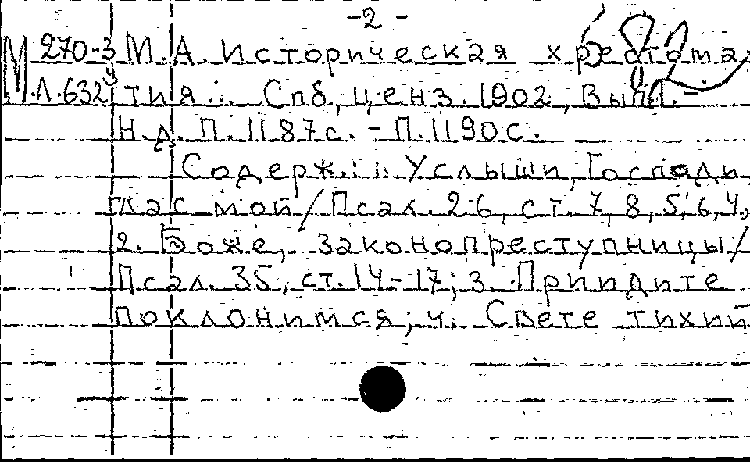 -2-
682
М 270-3 М.А. Историческая хрестома-
Л.632 тия. Спб, ценз. 1902, Вып.-
Н.д. П.1187с. - П.1190с.
Содерж.: 1. Услыши, Господи
глас мой/Псал. 26, ст. 7, 8, 5, 6, 4,
2. Боже, законопреступницы/
Псал. 35, ст. 14-17; 3. Приидите
поклонимся; 4. Свете тихий